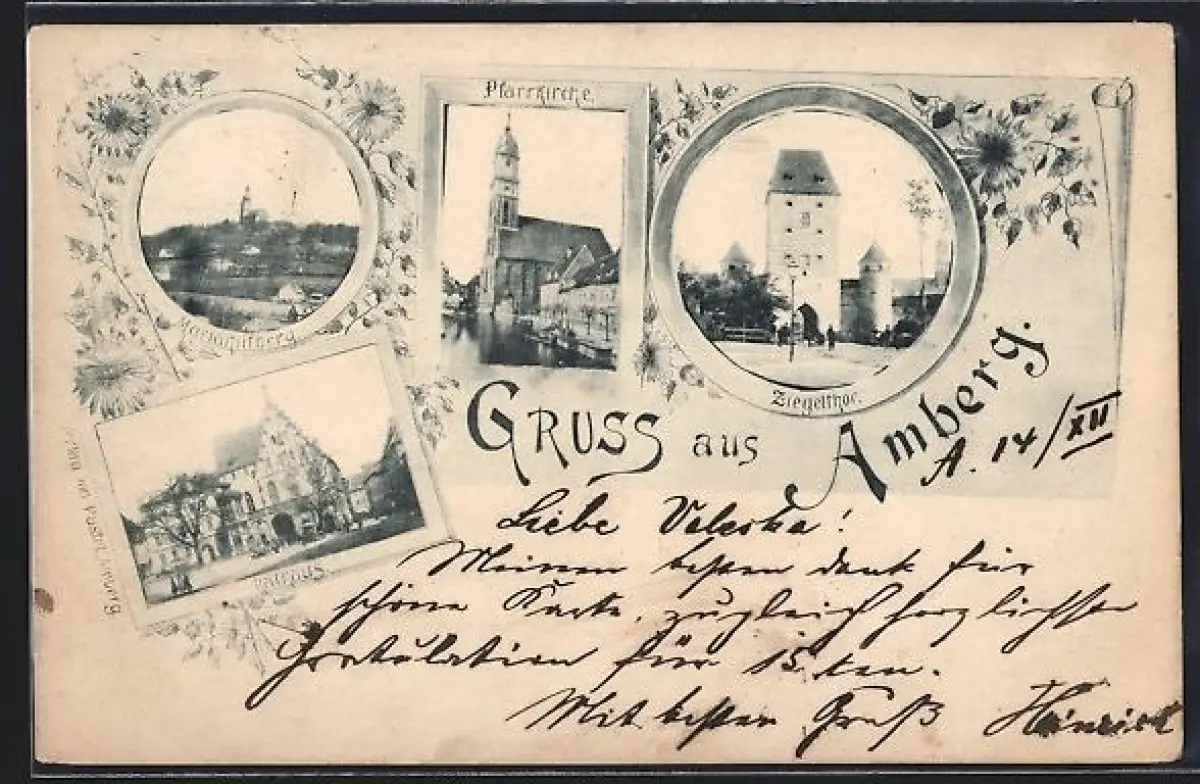 Pfarrkirche.
Ziegelthor.
Rathaus.
GRUSS aus Amberg.
A. 14/XII
Liebe Valeska!
Meinen besten dank für
schöne Karte, zugleich herzlichste
Gratulation für 15. ten.
Mit besten Gruß Heinrich